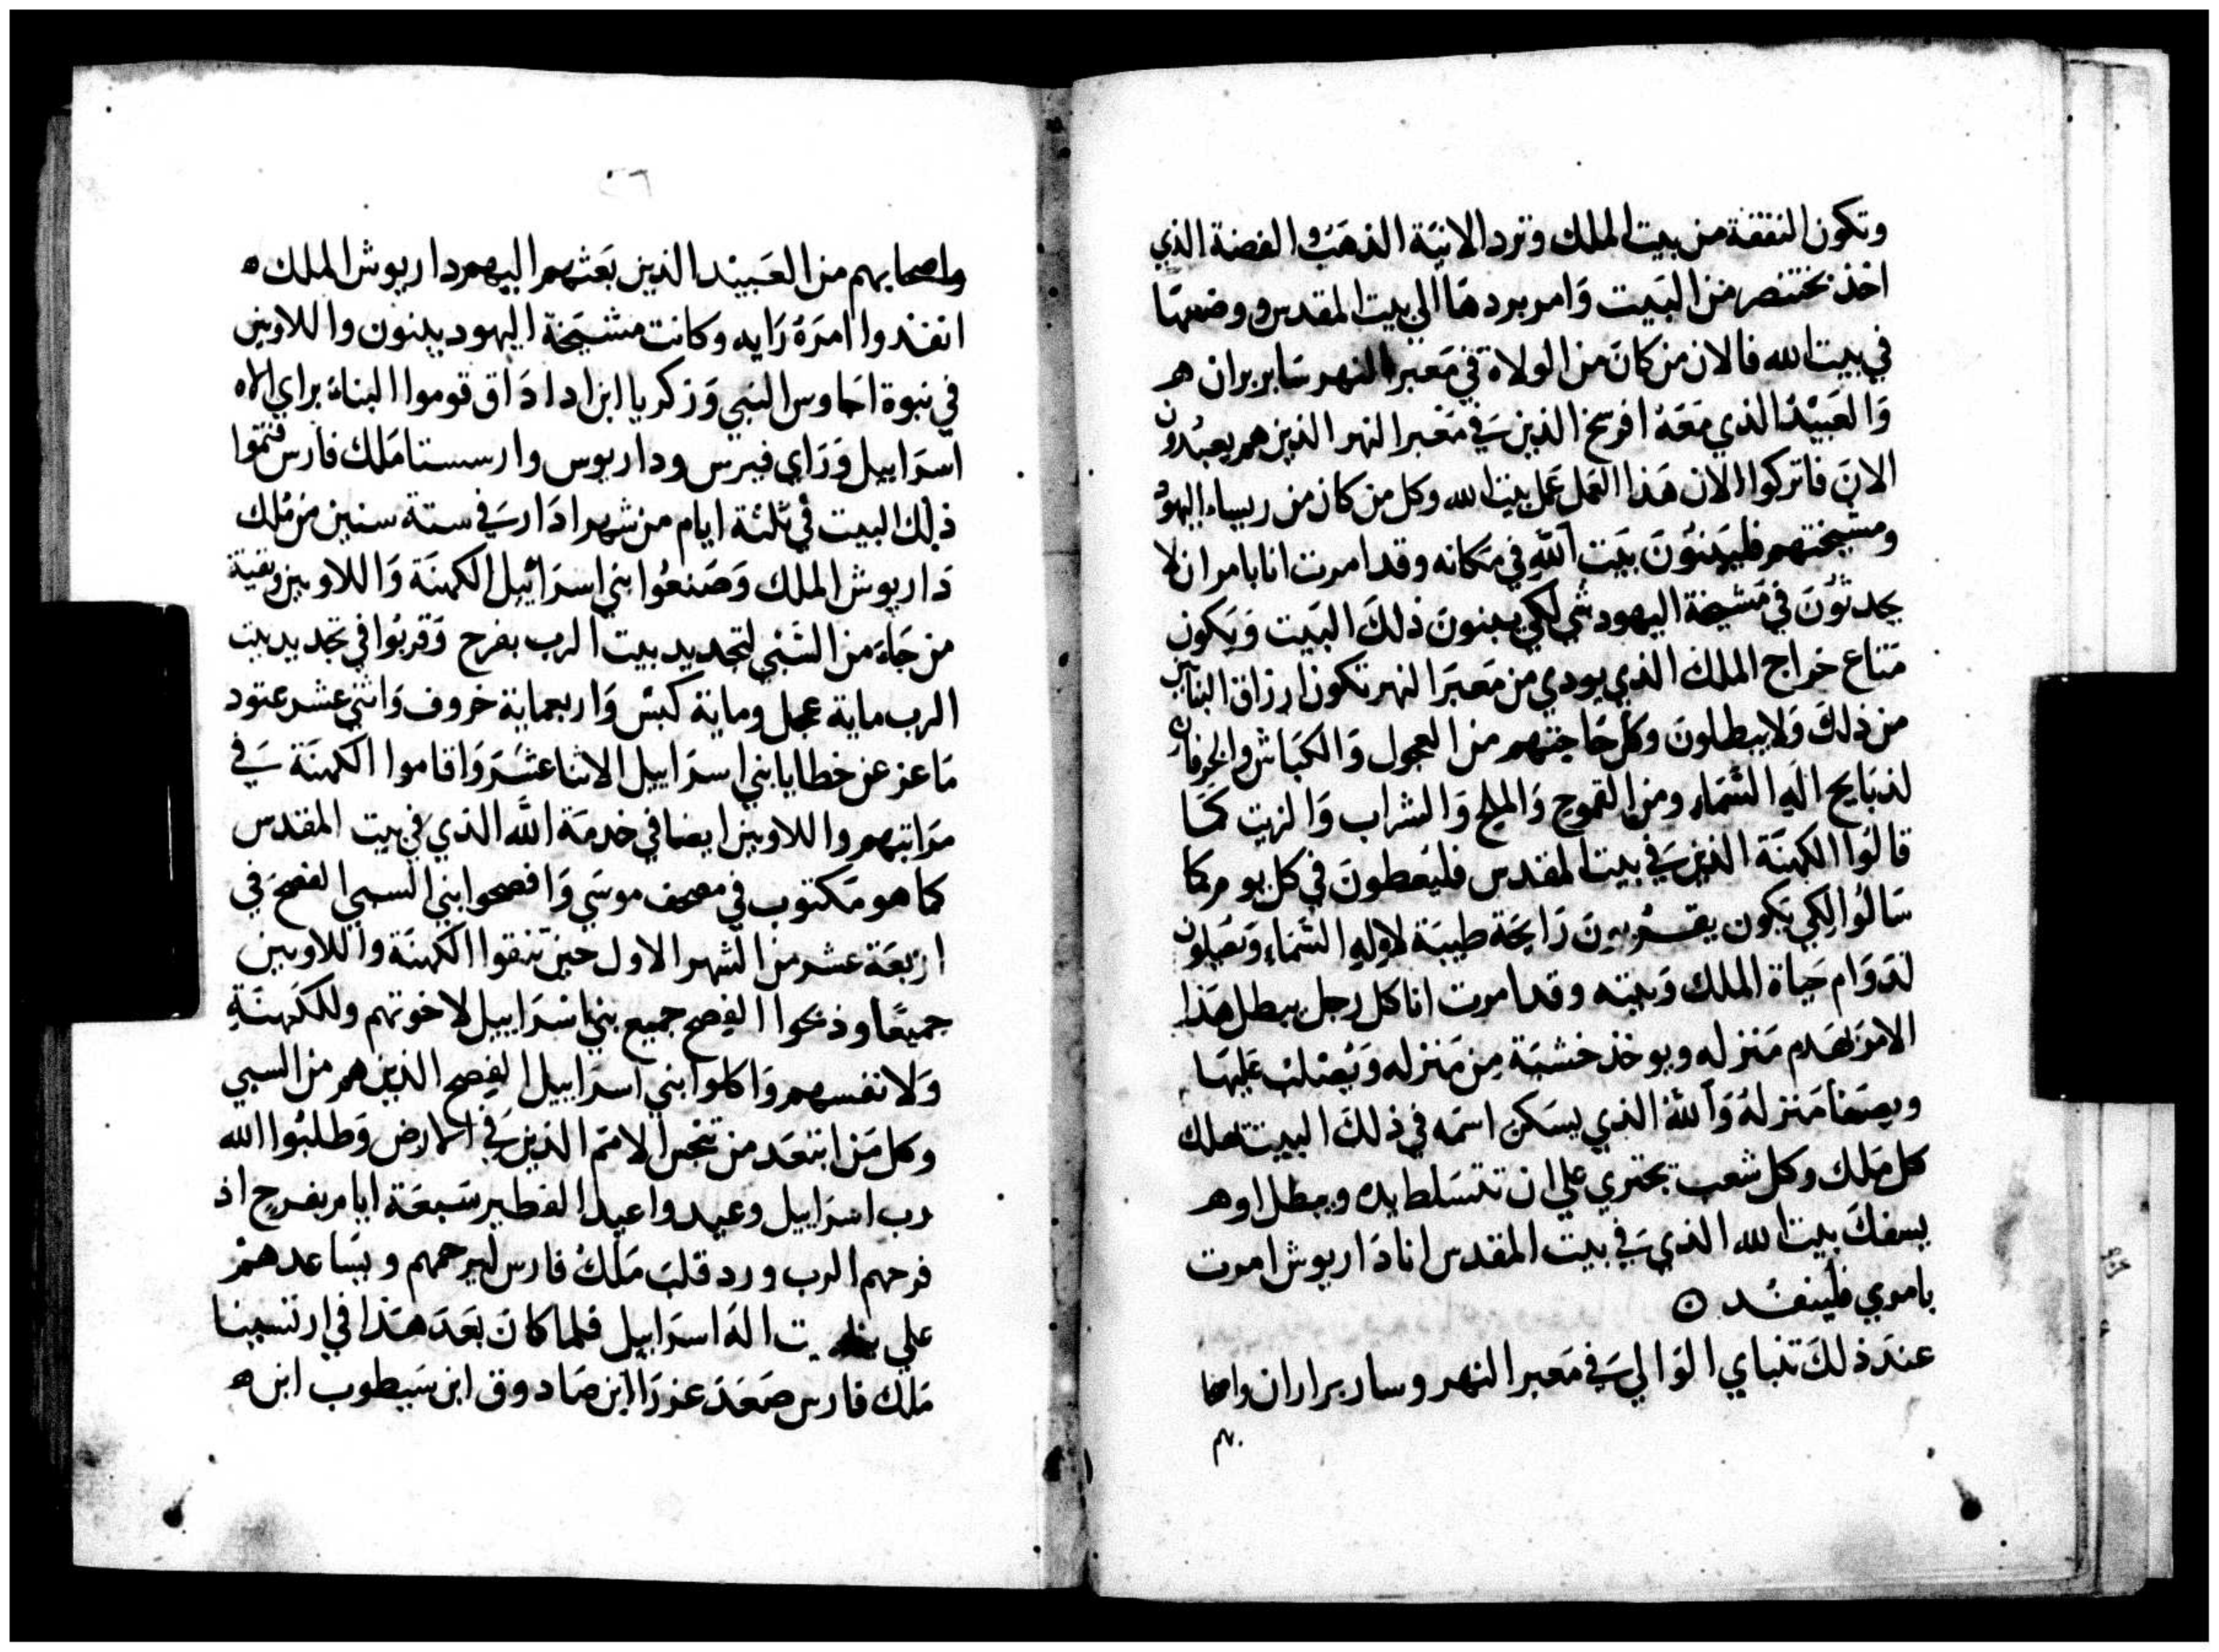 وتكون النفقة من بيت الملك وترد الانية الذهب والفضة الذي
اخذ بختنصر من البيت وامر بردها الي بيت المقدس ووضعها
في بيت الله فالان من كان من الولاة في معبر النهر سابربران هر
والعبيد الذي معه افرسخ الذين في معبر النهر الذين هم يعبدون
الان فاتركوا الان هذا العمل عمل بيت الله وكل من كان من ريساء اليهود
ومشيختهم فليبنون بيت الله في مكانه وقد امرت انا بامر ان لا
يحدثون في مشيخة اليهود شي لكي يبنون ذلك البيت ويكون
متاع خراج الملك الذي يودي من معبر النهر تكون ارزاق البنايين
من ذلك ولا يبطلون وكل حاجتهم من العجول والكباش والخرفان
لذبايح اله السماء ومن القموح والملح والشراب والزيت كما
قالوا الكهنة الذين في بيت المقدس فليعطون في كل يوم كما
سالوا لكي يكون يقربون رايحة طيبة لاله السماء ويصلون
لدوام حياة الملك وبيته وقد امرت انا كل رجل يبطل هذا
الامر يهدم منزله ويوخذ خشبة من منزله ويصلب عليها
ويصفا منزله والله الذي يسكن اسمه في ذلك البيت يهلك
كل ملك وكل شعب يجتري علي ان تتسلط يده ويبطل او هر
يسفك بيت الله الذي في بيت المقدس انا داريوش امرت
بامري فلينفد ه
عند ذلك تنباي الوالي في معبر النهر وسار براران واصحا
بهم
٥٦
واصحابهم من العبيد الذين بعثهم اليهم داريوش الملك ه
انفدوا امره رايه وكانت مشيخة اليهود يبنون واللاوين
في نبوة احاوس النبي وزكريا ابن ادا داق قوموا البناء براي الاه
اسراييل وراي فيرس وداريوس وارسستا ملك فارس فتموا
ذلك البيت في ثلثة ايام من شهر ادار في ستة سنين من ملك
داريوش الملك وصنعوا بني اسراييل الكهنة واللاويين وبقية
من جاء من السبي لتجديد بيت الرب بفرح وقربوا في تجديد بيت
الرب ماية عجل وماية كبش واربعماية خروف واثني عشر عتود
ماعز عن خطايا بني اسراييل الاثنا عشر واقاموا الكهنة في
مراتبهم واللاويين ايضا في خدمة الله الذي في بيت المقدس
كما هو مكتوب في مصحف موسي وافصحوا بني السبي الفصح في
اربعة عشر من الشهر الاول حين تنقوا الكهنة واللاويين
جميعا وذبحوا الفصح جميع بني اسراييل لاخوتهم وللكهنة
ولانفسهم واكلوا بني اسراييل الفصح الذين هم من السبي
وكل من ابتعد من تنجس الامم الذين في الارض وطلبوا الله
رب اسراييل وعيدوا عيد الفطير سبعة ايام بفرح اذ
فرحهم الرب ورد قلب ملك فارس ليرحمهم ويساعدهم
علي بيت اله اسراييل فلما كان بعد هذا في ارتسبنا
ملك فارس صعد عزرا ابن صادوق ابن سيطوب ابن ه